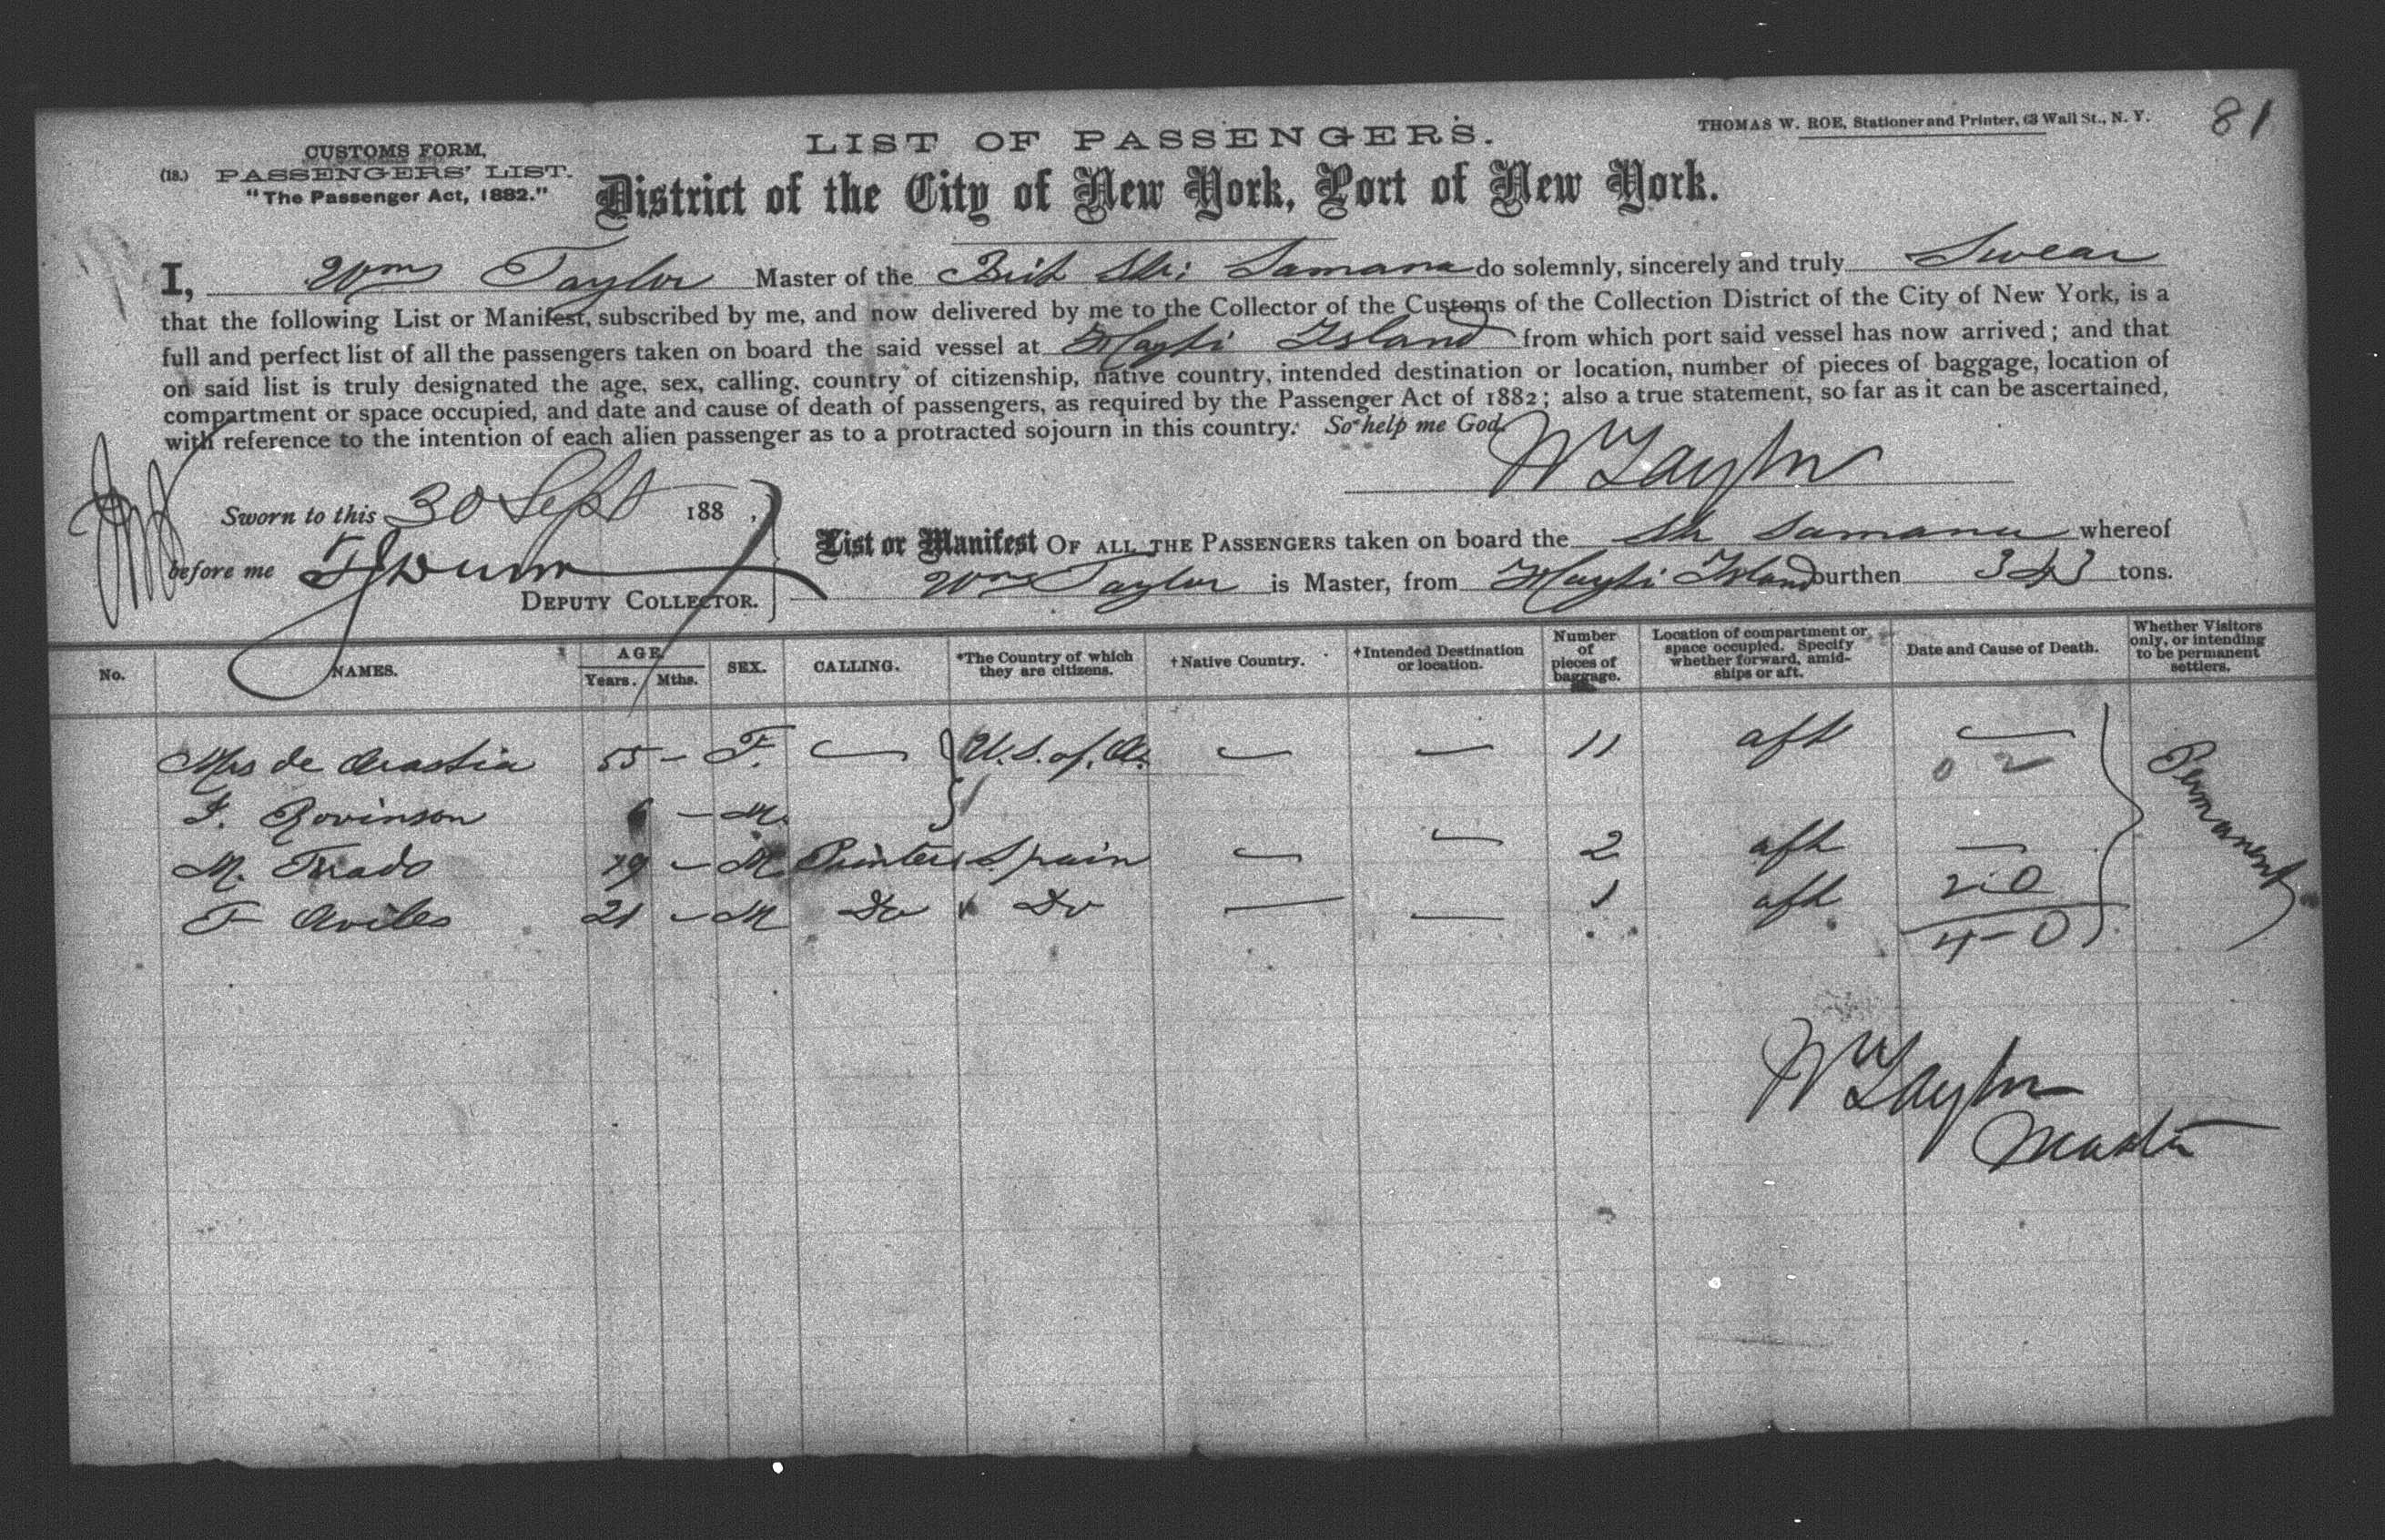 81
THOMAS W. ROE, Stationer and Printer, 63 Wall St., N. Y.
CUSTOMS FORM,
(18.) PASSENGERS' LIST.
"The Passenger Act, 1882."
LIST OF PASSENGERS.
District of the City of New York, Port of New York.
I, Wm Taylor Master of the Brit Str: Samana do solemnly, sincerely and truly Swear
that the following List or Manifest, subscribed by me, and now delivered by me to the Collector of the Customs of the Collection District of the City of New York, is a
full and perfect list of all the passengers taken on board the said vessel at Hayti Island from which port said vessel has now arrived; and that
on said list is truly designated the age, sex, calling, country of citizenship, native country, intended destination or location, number of pieces of baggage, location of
compartment or space occupied, and date and cause of death of passengers, as required by the Passenger Act of 1882; also a true statement, so far as it can be ascertained,
with reference to the intention of each alien passenger as to a protracted sojourn in this country. So help me God.
Wm Taylor
Sworn to this 30 Sept 188 ,
before me
DEPUTY COLLECTOR.
List or Manifest OF ALL THE PASSENGERS taken on board the Str Samana whereof
Wm Taylor is Master, from Hayti Island burthen 343 tons.
No. NAMES. AGE. Years. Mths. SEX. CALLING. *The Country of which they are citizens. †Native Country. †Intended Destination or location. Number of pieces of baggage. Location of compartment or space occupied. Specify whether forward, amidships or aft. Date and Cause of Death. Whether Visitors only, or intending to be permanent settlers.
Mrs de 55 - F. — U.S. of A. — — 11 aft —
0 2
J. Rovinson 6 - M.
M. Tirado 19 - M Printer Spain — — 2 aft —
2-0
F Aviles 21 - M Do Do — — 1 aft
4-0
Permanent
Wm Taylor
Master